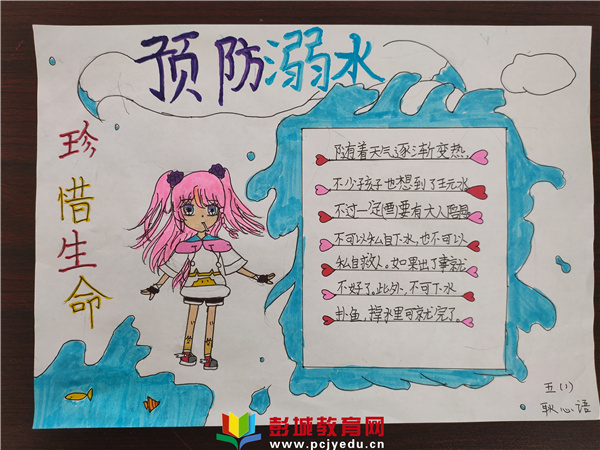 预防溺水
珍惜生命
随着天气逐渐变热,
不少孩子也想到了玩水
不过一定要有大人陪同
不可以私自下水,也不可以
私自救人。如果出了事就
不好了。此外,不可下水
扑鱼,掉水里可就完了。
五(1)
耿心语
彭城教育网
www.pcjyedu.cn